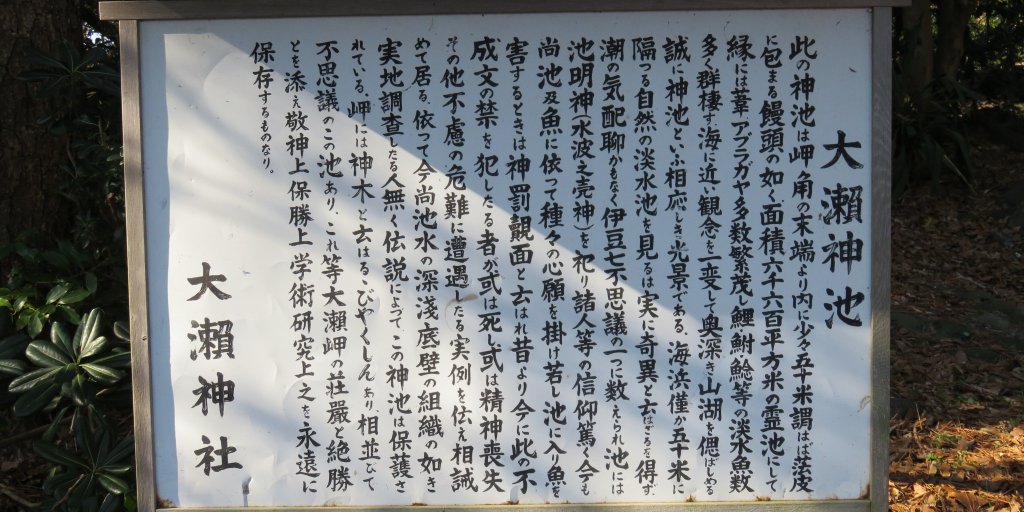 大瀬神池
此の神池は岬角の末端より内に少々五十米謂はば茫度
に包まる饅頭の如く面積六千六百平方米の霊池にして
縁には葦アブラガヤ多数繁茂し鯉鮒鯰等の淡水魚数
多く群棲す海に近い観念を一変して奥深き山湖を偲ばしめる
誠に神池といふ相応しき光景である。海浜僅か五十米に
隔つる自然の淡水池を見るは実に奇異と云はざるを得ず
潮の気配聊かもなく伊豆七不思議の一つに数えられ池には
池明神(水波之売神)を祀り諸人等の信仰篤く今も
尚池及魚に依って種々の心願を掛け若し池に入り魚を
害するときは神罰覿面と云はれ昔より今に此の不
成文の禁を犯したる者が或は死し或は精神喪失
その他不慮の危難に遭遇したる実例を伝え相誡
めて居る。依って今尚池水の深浅底壁の組織の如き
実地調査したる人無く伝説によって、この神池は保護さ
れている。岬には神木と云はる・びやくしんあり相並びて
不思議のこの池あり、これ等大瀬岬の荘厳と絶勝
とを添え敬神上保勝上学術研究上之を永遠に
保存するものなり。
大瀬神社